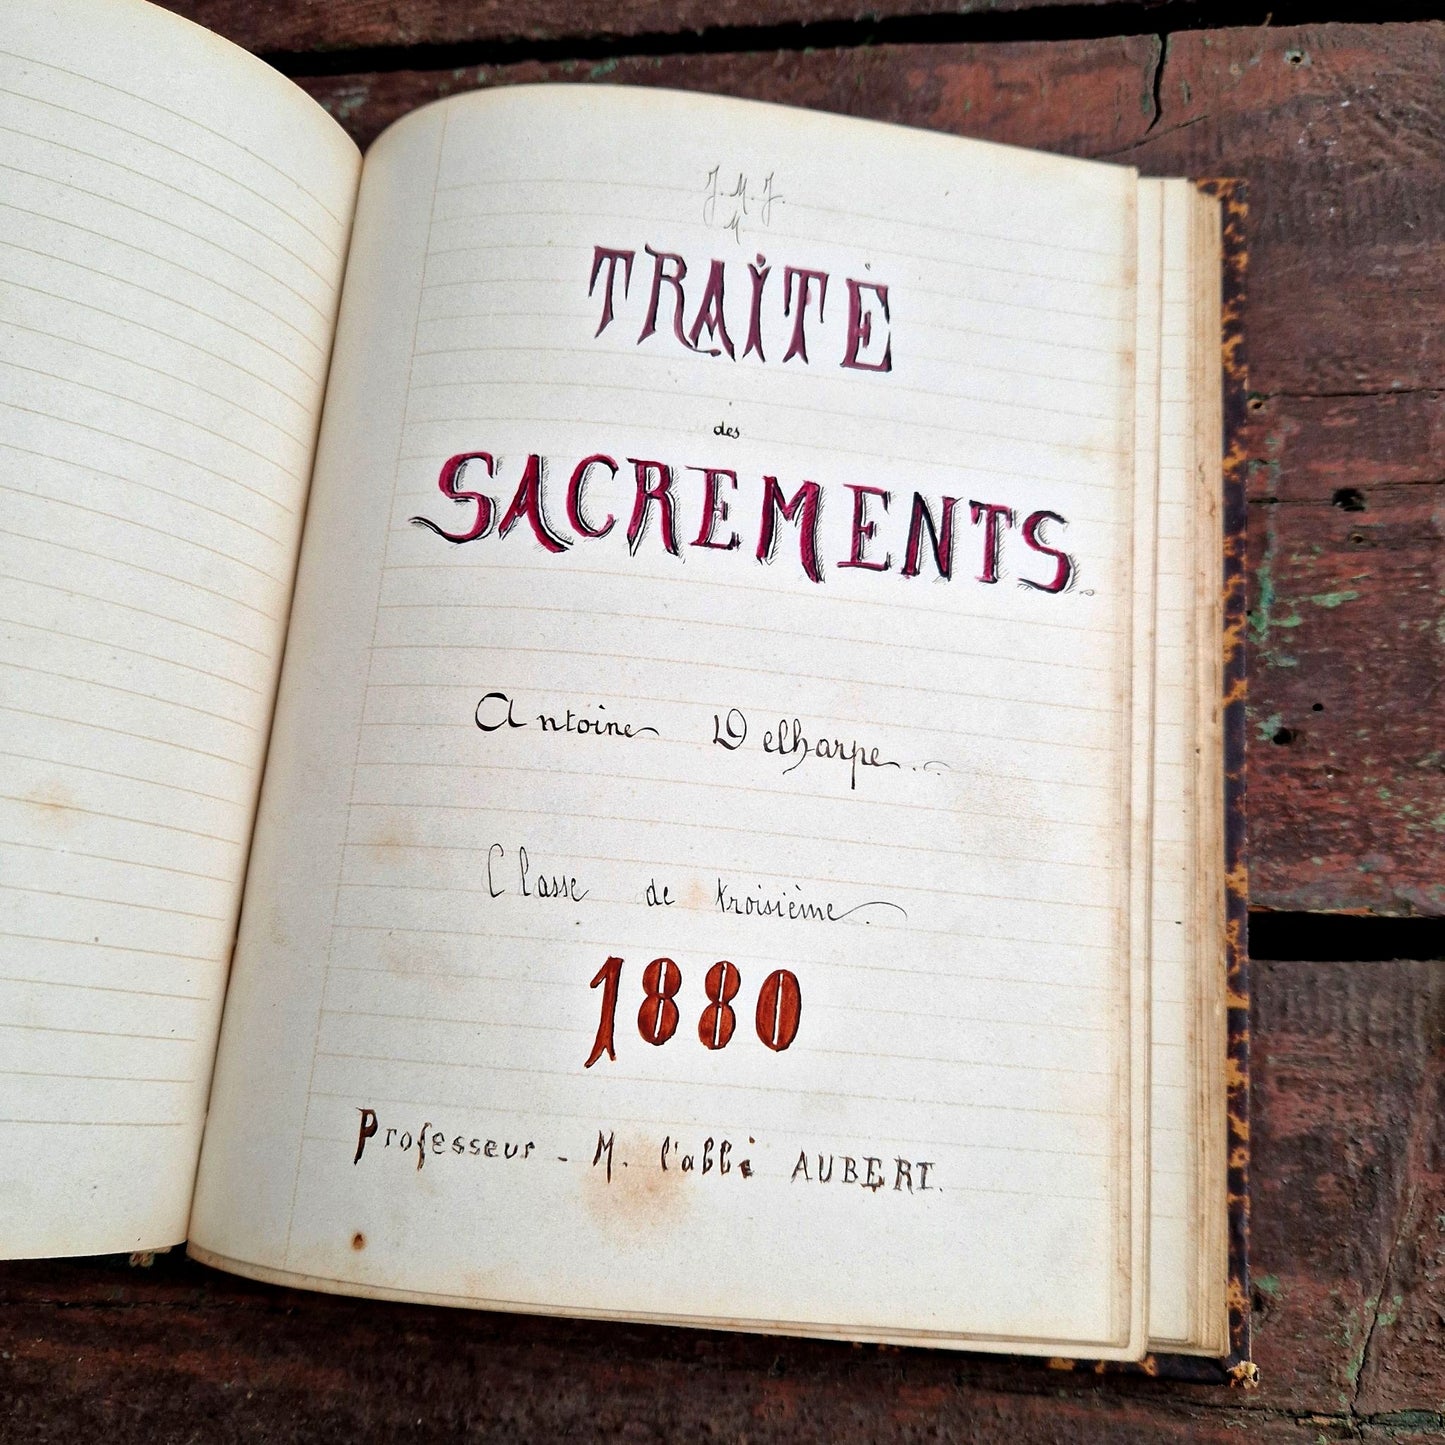 J. M. J.
M
TRAITÉ
des
SACREMENTS.
Antoine Delharpe.
Classe de troisième.
1880
Professeur - M. l'abbé AUBERT.